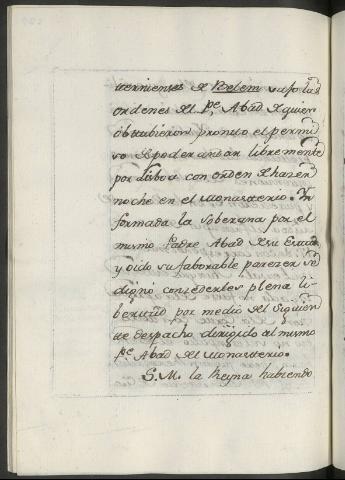 nernienses de Belem vajo las
ordenes del Pe. Abad de quien
obtubieron pronto el permi
so de poder andar libremente
por Lisboa con orden de hazer
noche en el Monasterio. In
formada la Soberana por el
mismo Padre Abad de su Estado
y oido su faborable parezer se
digno conzederles plena li-
bertad por medio del siguien
te despacho dirigido al mismo
Pe. Abad del Monasterio.
S. M. la Reyna habiendo